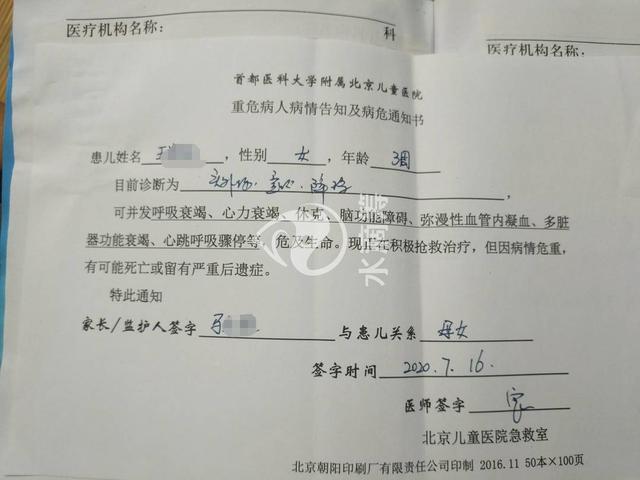 医疗机构名称：
科
医疗机构名称：
首都医科大学附属北京儿童医院
重危病人病情告知及病危通知书
患儿姓名 王 ，性别 女 ，年龄 3周
目前诊断为 ，
可并发呼吸衰竭、心力衰竭、休克、脑功能障碍、弥漫性血管内凝血、多脏
器功能衰竭、心跳呼吸骤停等，危及生命。现正在积极抢救治疗，但因病情危重，
有可能死亡或留有严重后遗症。
特此通知
家长/监护人签字 与患儿关系 母女
签字时间 2020.7.16.
医师签字
北京儿童医院急救室
北京朝阳印刷厂有限责任公司印制 2016.11 50本×100页
水滴筹